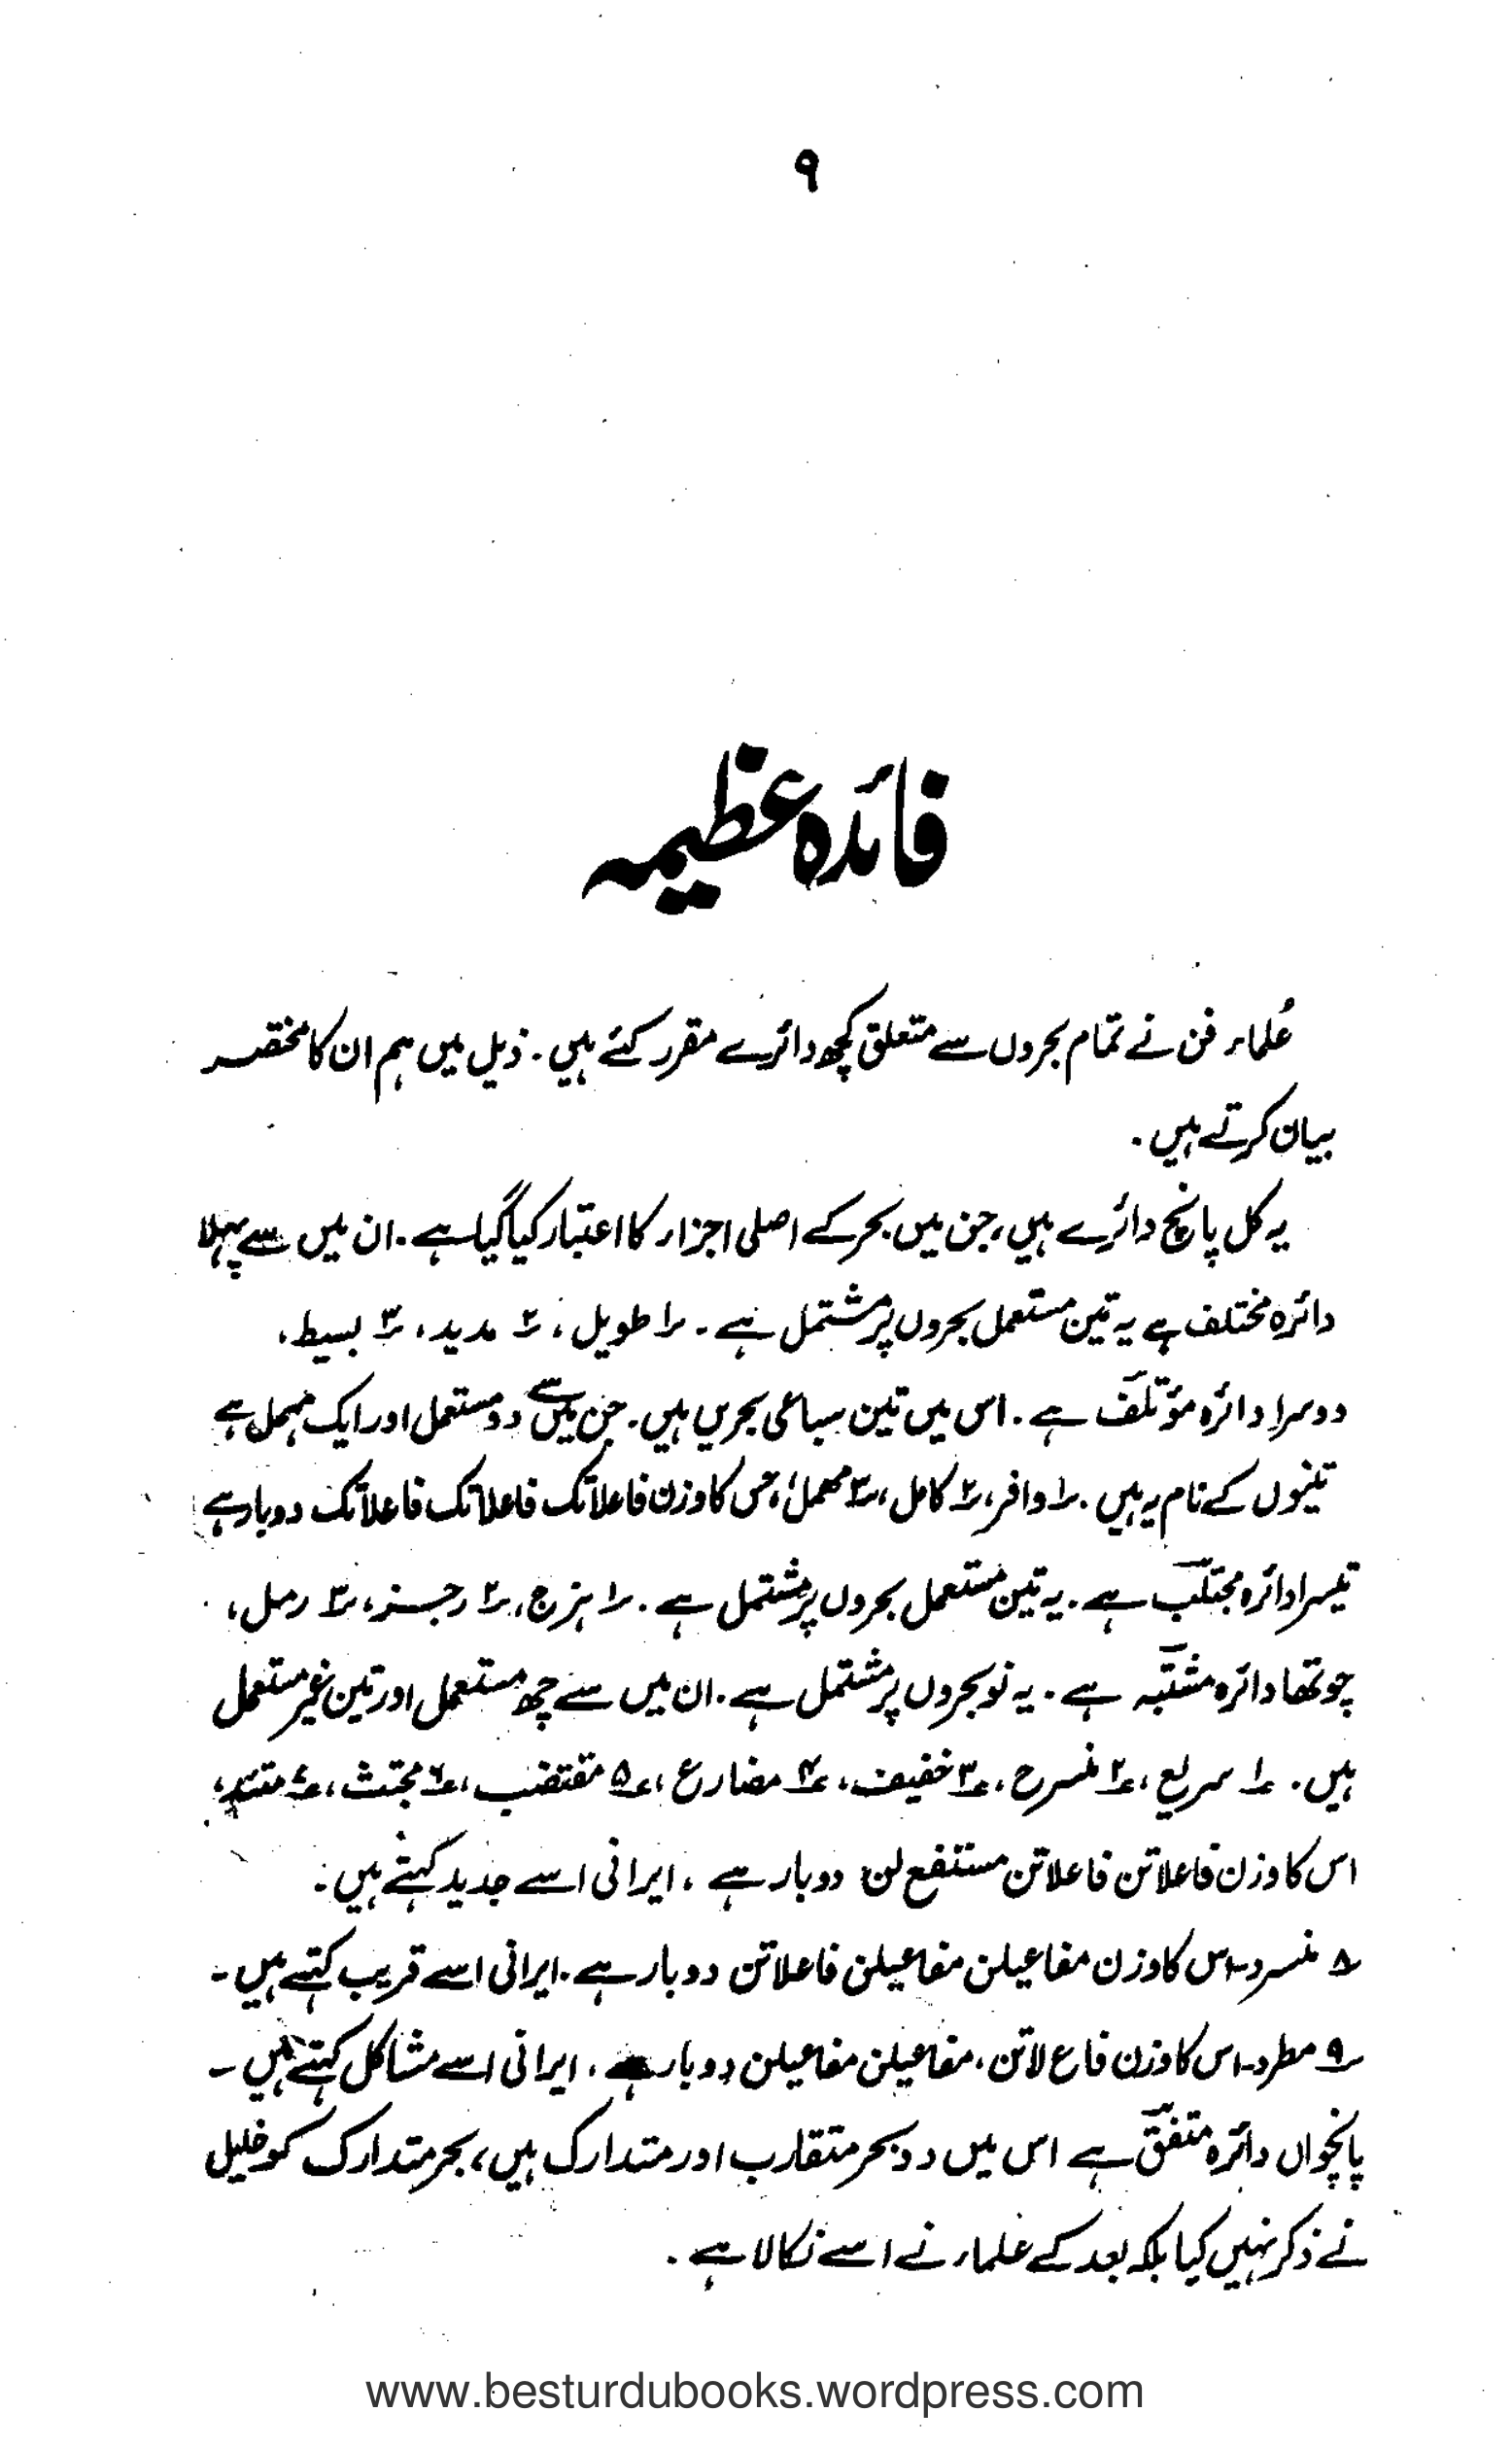 ۹
فائدہ عظیمہ
عُلماء فن نے تمام بحروں سے متعلق کچھ دائرے مقرر کئے ہیں۔ ذیل میں ہم ان کا مختصر
بیان کرتے ہیں۔
یہ کل پانچ دائرے ہیں، جن میں بحر کے اصلی اجزاء کا اعتبار کیا گیا ہے۔ ان میں سے پہلا
دائرہ مختلف ہے یہ تین مستعمل بحروں پر مشتمل ہے۔ ۱ طویل، ۲ مدید، ۳ بسیط،
دوسرا دائرہ مؤتلَف ہے۔ اس میں تین سباعی بحریں ہیں۔ جن میں سے دو مستعمل اور ایک مہمل ہے
تینوں کے نام یہ ہیں۔ ۱ وافر، ۲ کامل، ۳ مہمل، جس کا وزن فاعلاتک فاعلاتک فاعلاتک دوبار ہے
تیسرا دائرہ مجتلَب ہے۔ یہ تین مستعمل بحروں پر مشتمل ہے۔ ۱ ہزج، ۲ رجز، ۳ رمل،
چوتھا دائرہ مشتَبہ ہے۔ یہ نو بحروں پر مشتمل ہے۔ ان میں سے چھ مستعمل اور تین غیر مستعمل
ہیں۔ ۱ سریع، ۲ منسرح، ۳ خفیف، ۴ مضارع، ۵ مقتضب، ۶ مجتث، ۷ متئد،
اس کا وزن فاعلاتن فاعلاتن مستفع لن دوبار ہے، ایرانی اسے جدید کہتے ہیں۔
۸ منسرد۔ اس کا وزن مفاعیلن مفاعیلن فاعلاتن دوبار ہے۔ ایرانی اسے قریب کہتے ہیں۔
۹ مطرد۔ اس کا وزن فاع لاتن، مفاعیلن مفاعیلن دوبار ہے۔ ایرانی اسے مشاکل کہتے ہیں۔
پانچواں دائرہ متفَق ہے اس میں دو بحر متقارب اور متدارک ہیں، بحر متدارک کو خلیل
نے ذکر نہیں کیا بلکہ بعد کے علماء نے اسے نکالا ہے۔
www.besturdubooks.wordpress.com